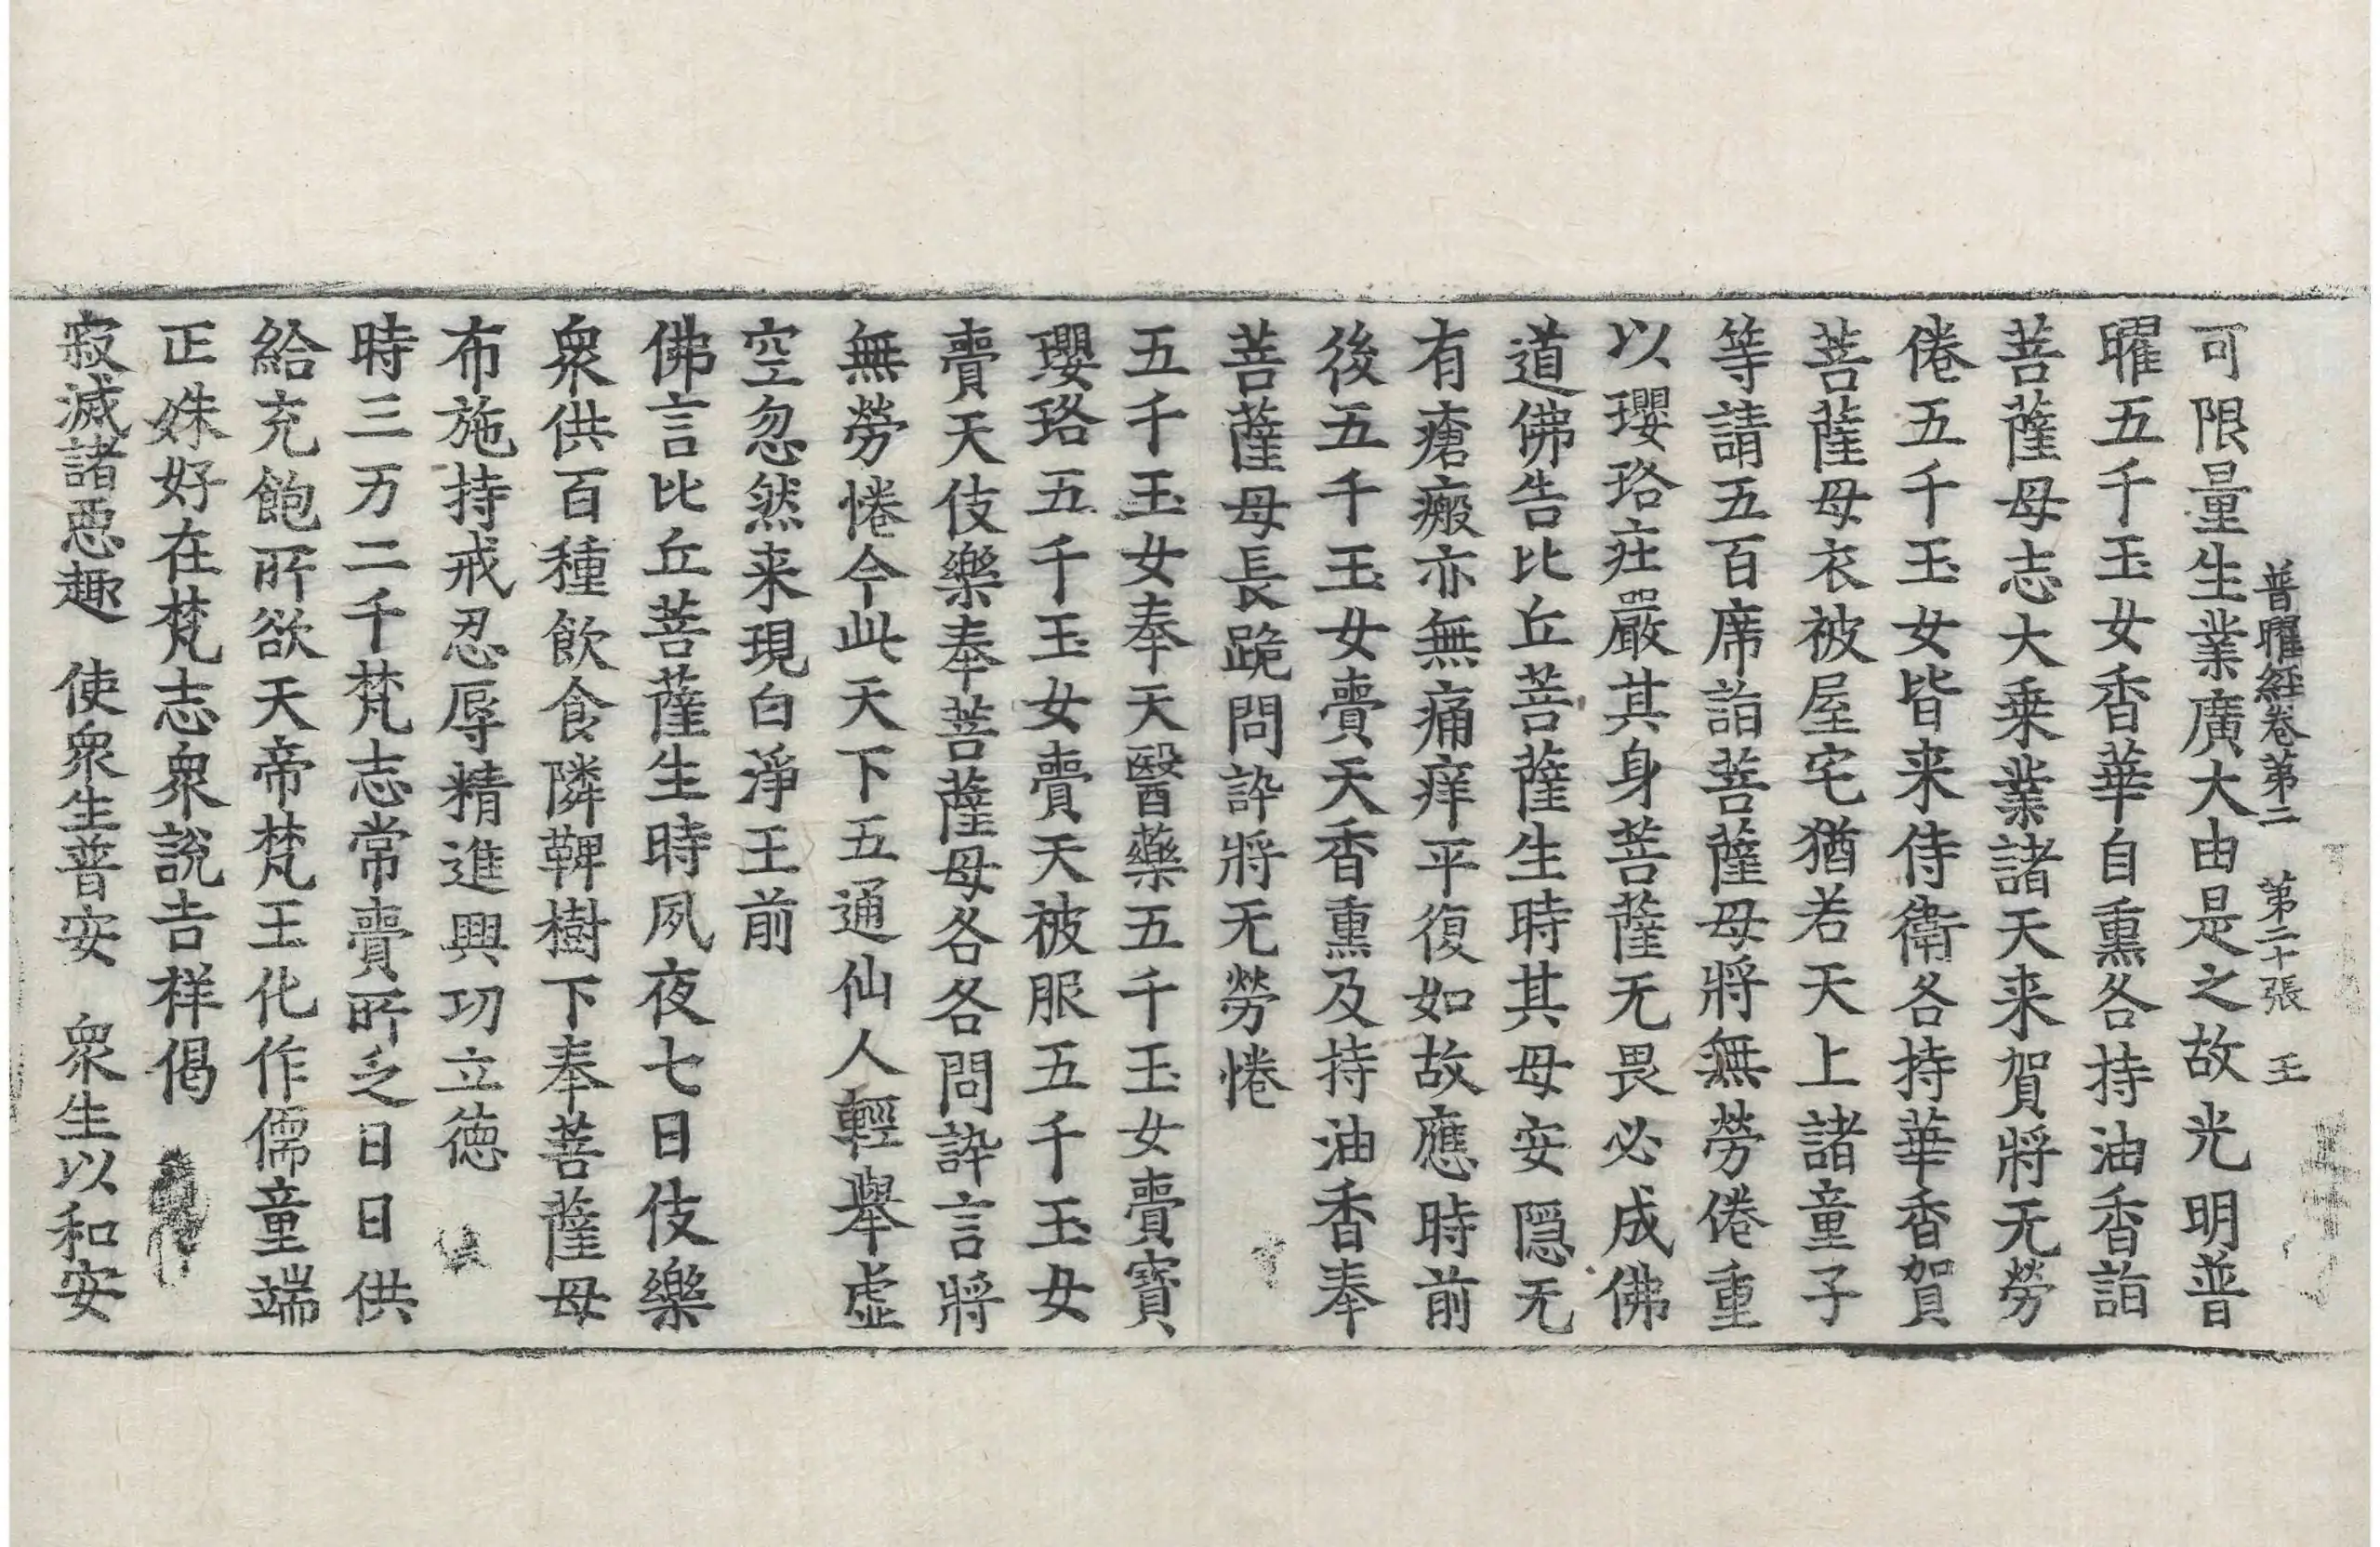 普曜經卷第二　第二十張　王
可限量生業廣大由是之故光明普
曜五千玉女香華自熏各持油香詣
菩薩母志大乗業諸天来賀將无勞
倦五千玉女皆来侍衛各持華香賀
菩薩母衣被屋宅猶若天上諸童子
等請五百席詣菩薩母將無勞倦重
以瓔珞莊嚴其身菩薩无畏必成佛
道佛告比丘菩薩生時其母安隠无
有瘡瘢亦無痛痒平復如故應時前
後五千玉女賷天香熏及持油香奉
菩薩母長跪問訡將无勞惓
五千玉女奉天醫藥五千玉女賷寶
瓔珞五千玉女賷天被服五千玉女
賷天伎樂奉菩薩母各各問訡言將
無勞惓今此天下五通仙人輕舉虛
空忽然来現白淨王前
佛言比丘菩薩生時夙夜七日伎樂
衆供百種飲食隣鞞樹下奉菩薩母
布施持戒忍辱精進興功立德
時三万二千梵志常賷所乏日日供
給充飽所欲天帝梵王化作儒童端
正姝好在梵志衆說吉祥偈
寂滅諸惡趣　使衆生普安　衆生以和安